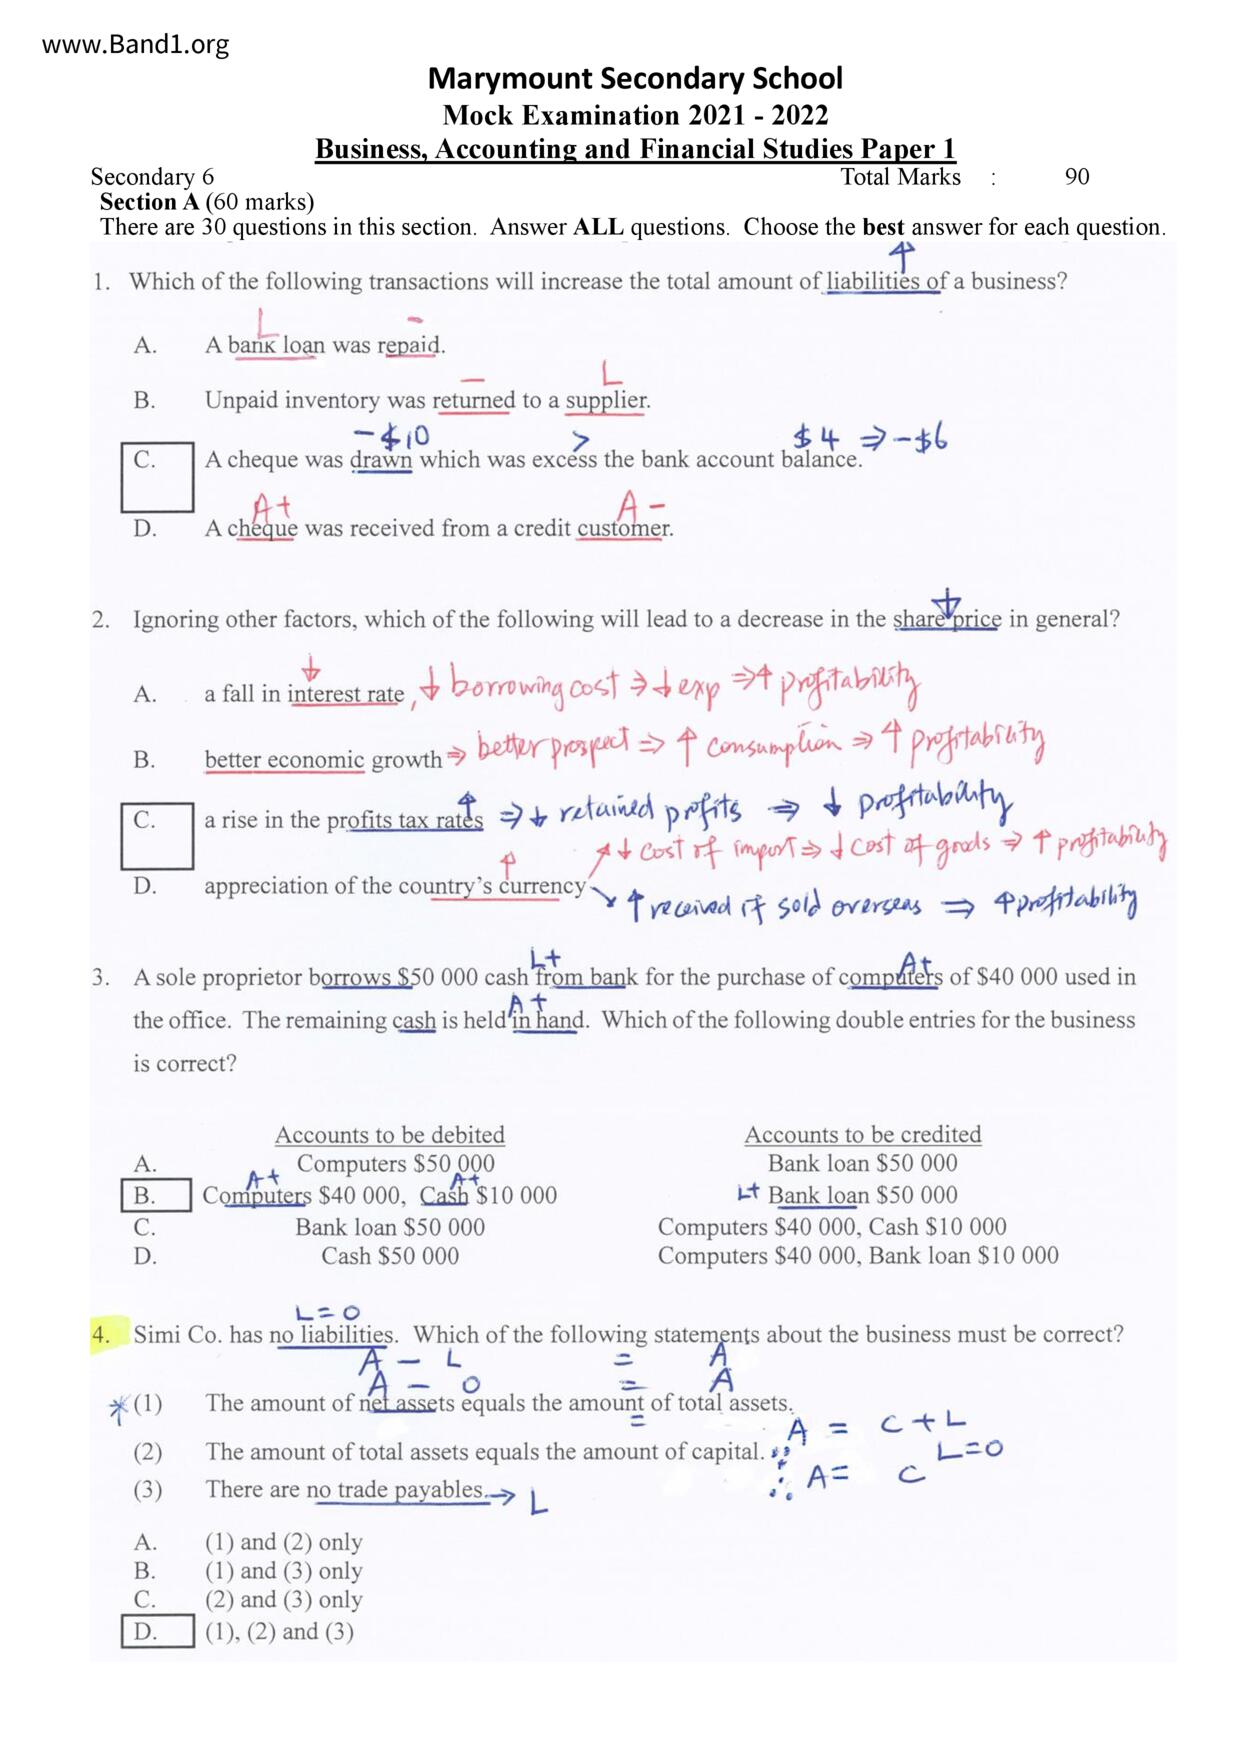 www.Band1.org
Marymount Secondary School
Mock Examination 2021 - 2022
Business, Accounting and Financial Studies Paper 1
Secondary 6 Total Marks : 90
Section A (60 marks)
There are 30 questions in this section. Answer ALL questions. Choose the best answer for each question.
↑
1. Which of the following transactions will increase the total amount of liabilities of a business?
L -
A. A bank loan was repaid.
- L
B. Unpaid inventory was returned to a supplier.
-$10 > $4 ⇒ -$6
C. A cheque was drawn which was excess the bank account balance.
A+ A-
D. A cheque was received from a credit customer.
↓
2. Ignoring other factors, which of the following will lead to a decrease in the share price in general?
↓
A. a fall in interest rate, ↓ borrowing cost ⇒ ↓ exp ⇒ ↑ profitability
B. better economic growth ⇒ better prospect ⇒ ↑ consumption ⇒ ↑ profitability
↑
C. a rise in the profits tax rates ⇒ ↓ retained profits ⇒ ↓ profitability
↑ ↗ ↓ cost of import ⇒ ↓ cost of goods ⇒ ↑ profitability
D. appreciation of the country's currency
↘ ↑ received if sold overseas ⇒ ↑ profitability
L+ A+
3. A sole proprietor borrows $50 000 cash from bank for the purchase of computers of $40 000 used in
A+
the office. The remaining cash is held in hand. Which of the following double entries for the business
is correct?
Accounts to be debited Accounts to be credited
A. Computers $50 000 Bank loan $50 000
A+ A+
B. Computers $40 000, Cash $10 000 L+ Bank loan $50 000
C. Bank loan $50 000 Computers $40 000, Cash $10 000
D. Cash $50 000 Computers $40 000, Bank loan $10 000
L=0
4. Simi Co. has no liabilities. Which of the following statements about the business must be correct?
A - L = A
A - 0 = A
*(1) The amount of net assets equals the amount of total assets.
= A = C + L
(2) The amount of total assets equals the amount of capital. ∵ L=0
∴ A = C
(3) There are no trade payables. → L
A. (1) and (2) only
B. (1) and (3) only
C. (2) and (3) only
D. (1), (2) and (3)